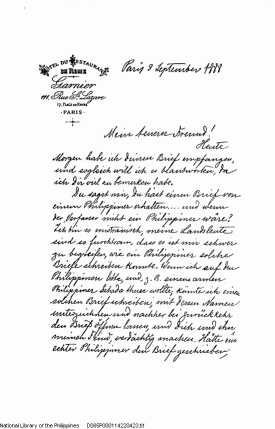 HÔTEL DU RESTAURANT
DE ROME
Garnier
111, Rue St. Lazare
PARIS
Paris 3 September 1888
Mein teurer Freund!
Heute
Morgen habe ich deinen Brief empfangen,
und sogleich will ich es beantworten, da
ich dir viel zu bemerken habe.
Du sagst mir, du hast einen Brief von
einem Philippiner erhalten.... und wenn
der Verfasser nicht ein Philippiner wäre?
meine Landsleute
sind so furchtsam, dass es ist mir schwer
zu begreifen, wie ein Philippiner solche
Briefe schreiben konnte. Wenn ich auf den
Philippinen lebe, und, z. B. einem armen
Philippiner Schaden thuen wollte, könnte ich einen
solchen Brief schreiben, mit dessen Namen
unterzeichnen und nachher bei
den Brief öffnen lassen, und dich und ihn
verdächtig machen. Hätte ein
echter Philippiner den Brief geschrieben,
National Library of the Philippines